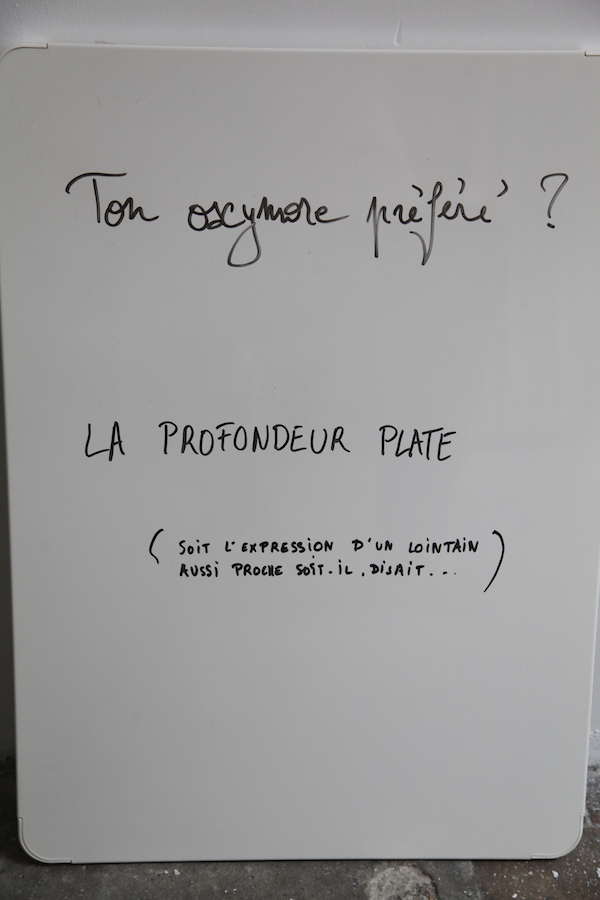 Ton oxymore préféré ?
LA PROFONDEUR PLATE
( SOIT L'EXPRESSION D'UN LOINTAIN
AUSSI PROCHE SOIT-IL, DISAIT... )